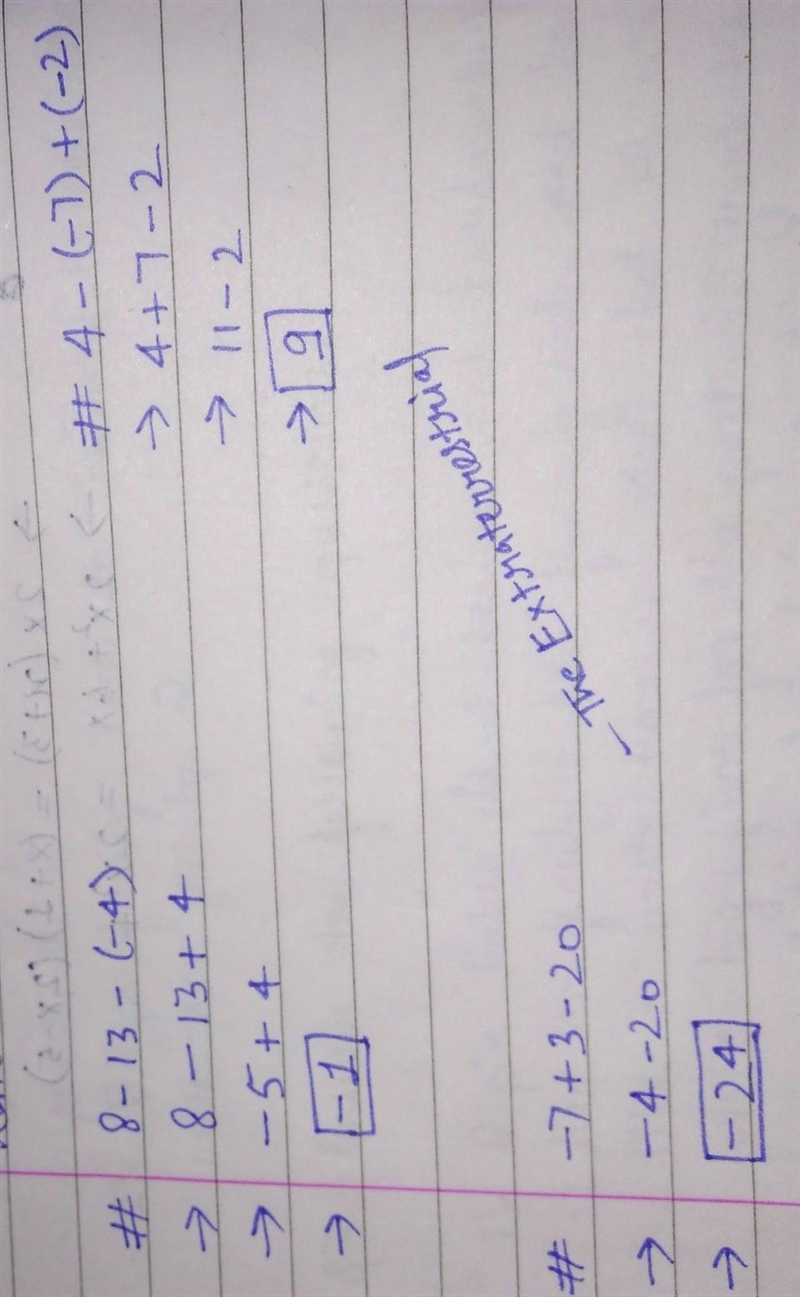 # 8-13-(-4)
→ 8-13+4
→ -5+4
→ -1
# 4-(-7)+(-2)
→ 4+7-2
→ 11-2
→ 9
- The Extraterrestrial
# -7+3-20
→ -4-20
→ -24